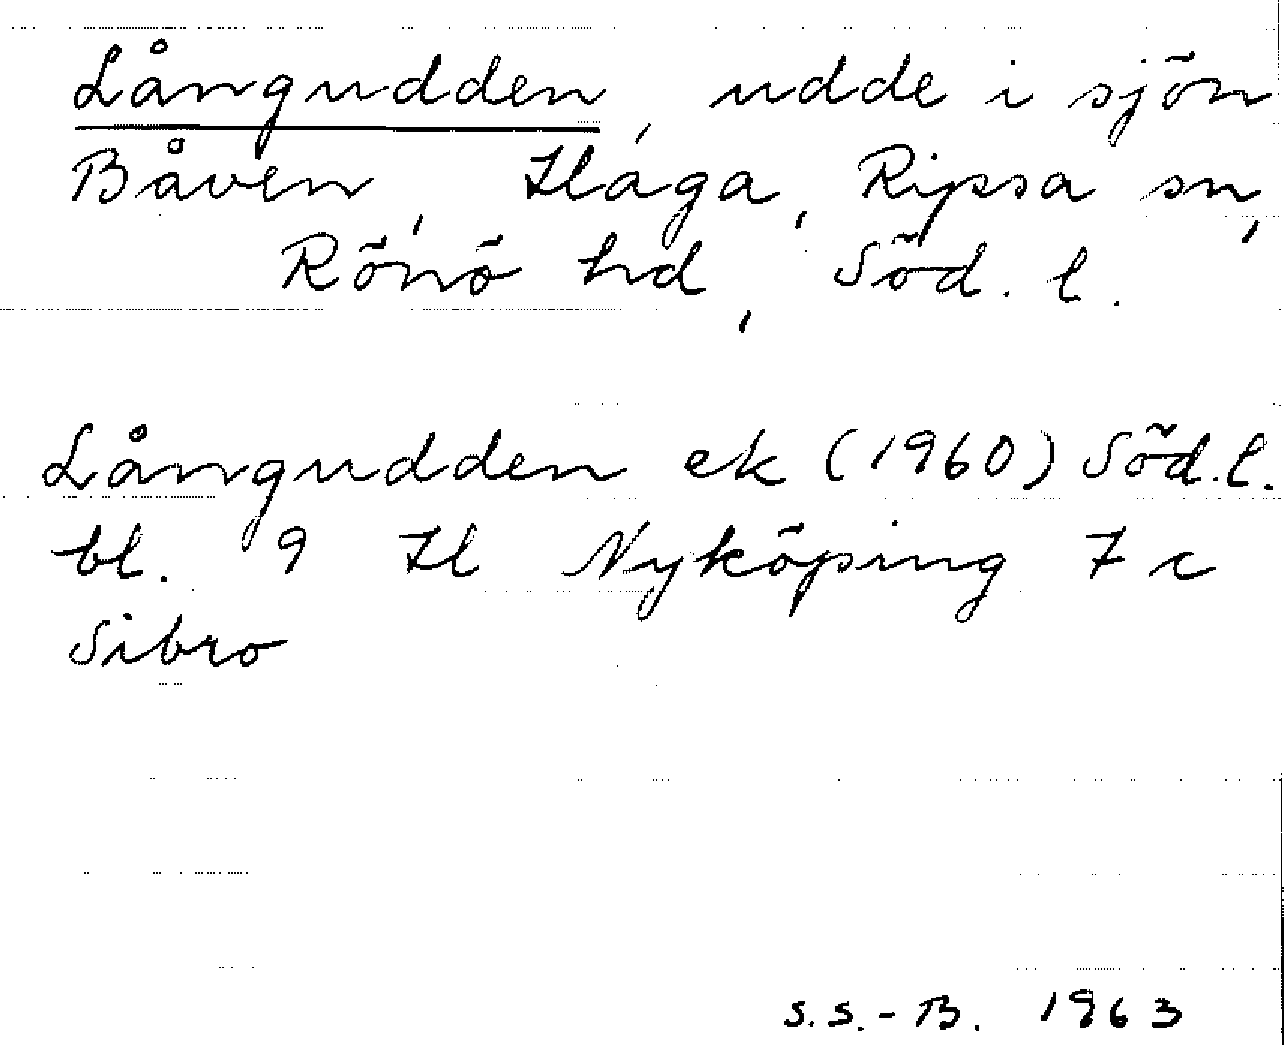 Långudden, udde i sjön
Båven, Haga, Ripsa sn,
Rönö hd, Söd. l.
Långudden ek (1960) Söd. l.
bl. 9 H Nyköping 7 c
Sibro
S.S.-B. 1963